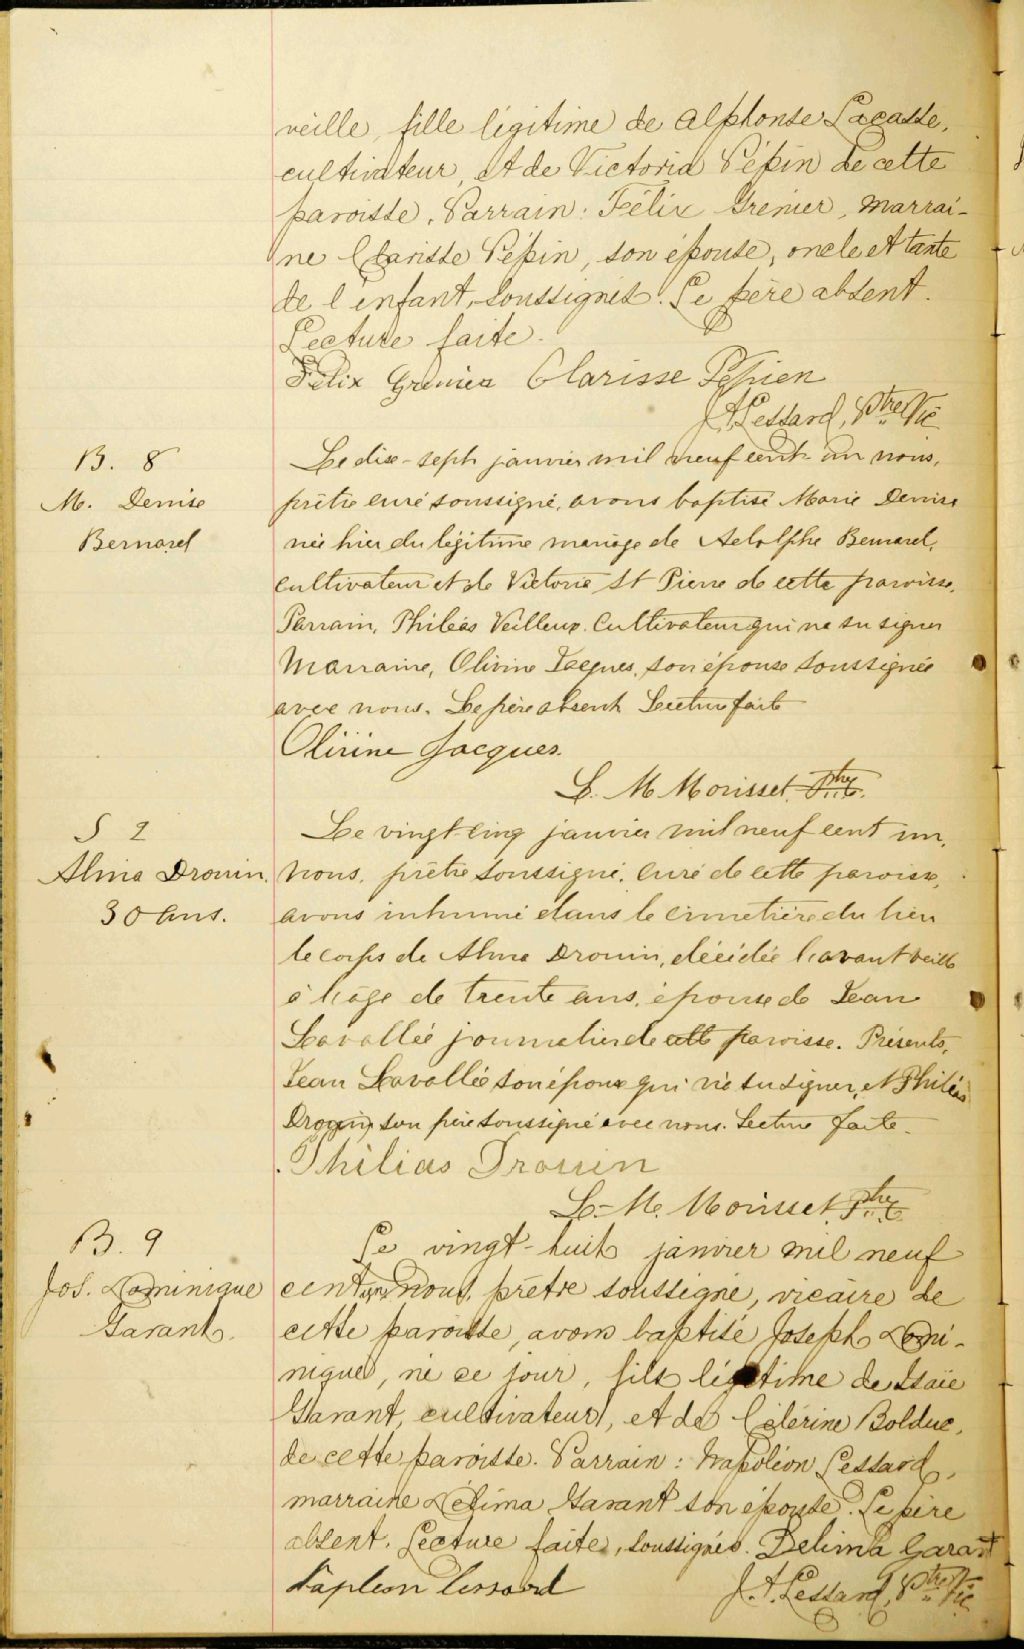 veille, fille légitime de Alphonse Lacasse,
cultivateur, et de Victoria Pépin de cette
paroisse. Parrain: Félix Grenier, marrai-
ne Clarisse Pépin, son épouse, oncle et tante
de l'enfant, soussignés. Le père absent.
Lecture faite.
Félix Grenier Clarisse Pépien
J.A. Lessard, Ptre Vic
B. 8
M. Denise
Bernard
Le dix-sept janvier mil neuf cent un nous,
prêtre curé soussigné, avons baptisé Marie Denise
née hier du légitime mariage de Adolphe Bernard,
cultivateur et de Victoria St Pierre de cette paroisse.
Parrain, Philéas Veilleux. Cultivateur qui ne su signer
Marraine, Olivine Jacques, son épouse soussignée
avec nous. Le père absent Lecture faite
Olivine Jacques.
L. M. Morisset, Ptre
S 2
Alma Drouin.
30 ans.
Le vingt-cinq janvier mil neuf cent un,
nous, prêtre soussigné, curé de cette paroisse,
avons inhumé dans le cimetière du lieu
le corps de Alma Drouin, décédée l'avant veille
à l'âge de trente ans, épouse de Jean
Lavallée journalier de cette paroisse. Présents,
Jean Lavallée son époux qui n'a su signer, et Philéas
Drouin, son père soussigné avec nous. Lecture faite.
Philias Drouin
L.-M. Morisset, Ptre
B. 9
Jos. Dominique
Garant.
Le vingt-huit janvier mil neuf
cent un nous, prêtre soussigné, vicaire de
cette paroisse, avons baptisé Joseph Domi-
nique, né ce jour, fils légitime de Isaïe
Garant, cultivateur, et de Célérine Bolduc,
de cette paroisse. Parrain: Napoléon Lessard,
marraine Délima Garant son épouse. Le père
absent. Lecture faite, soussignés. Delima Garant
Napleon Lessard
J.A. Lessard, Ptre Vic